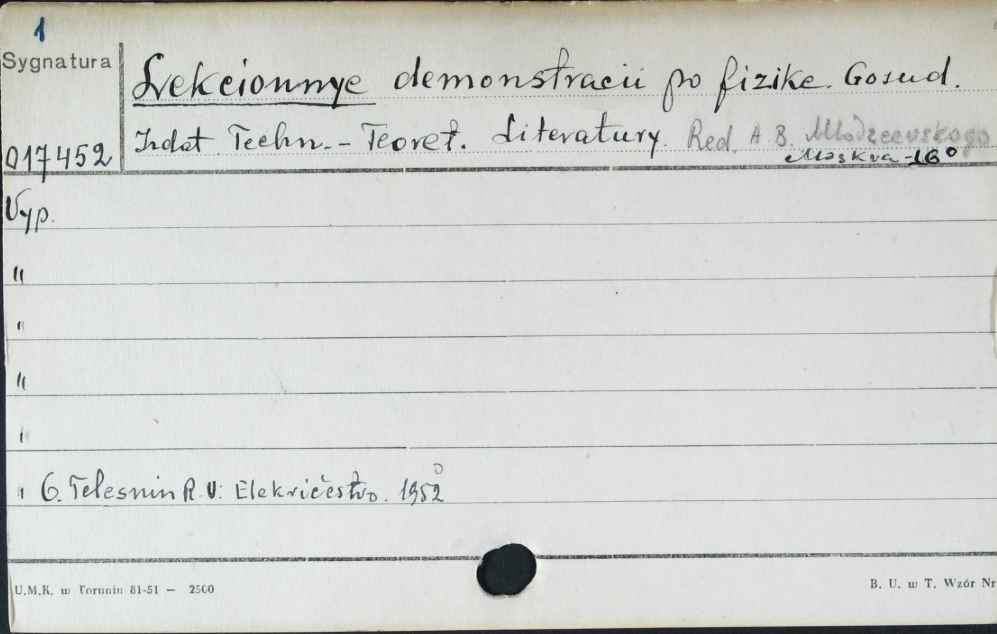 1
Sygnatura
Lekcionnye demonstracii po fizike. Gosud.
Izdat Techn.-Teoret. Literatury. Red. A. B. Mlodzeevskogo
017452
Moskva - 16°
Vyp.
"
"
"
"
" 6. Telesnin R. V: Elekričestvo. 1952
U.M.K. w Toruniu 81-51 — 2500
B. U. w T. Wzór Nr